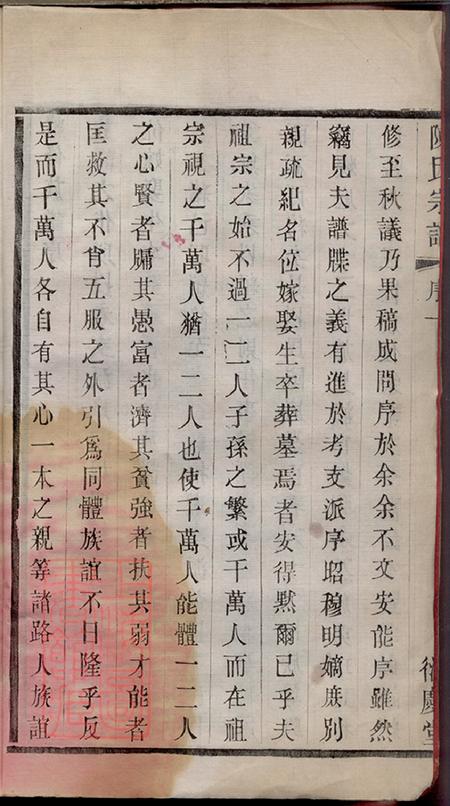 陳氏宗譜 序一
修至秋議乃果稿成問序於余余不文安能序雖然
竊見夫譜牒之義有進於考支派序昭穆明嫡庶別
親疏紀名位嫁娶生卒葬墓焉者安得默爾已乎夫
祖宗之始不過一二人子孫之繁或千萬人而在祖
宗視之千萬人猶一二人也使千萬人能體一二人
之心賢者牖其愚富者濟其貧強者扶其弱才能者
匡救其不肖五服之外引爲同體族誼不日隆乎反
是而千萬人各自有其心一本之親等諸路人族誼